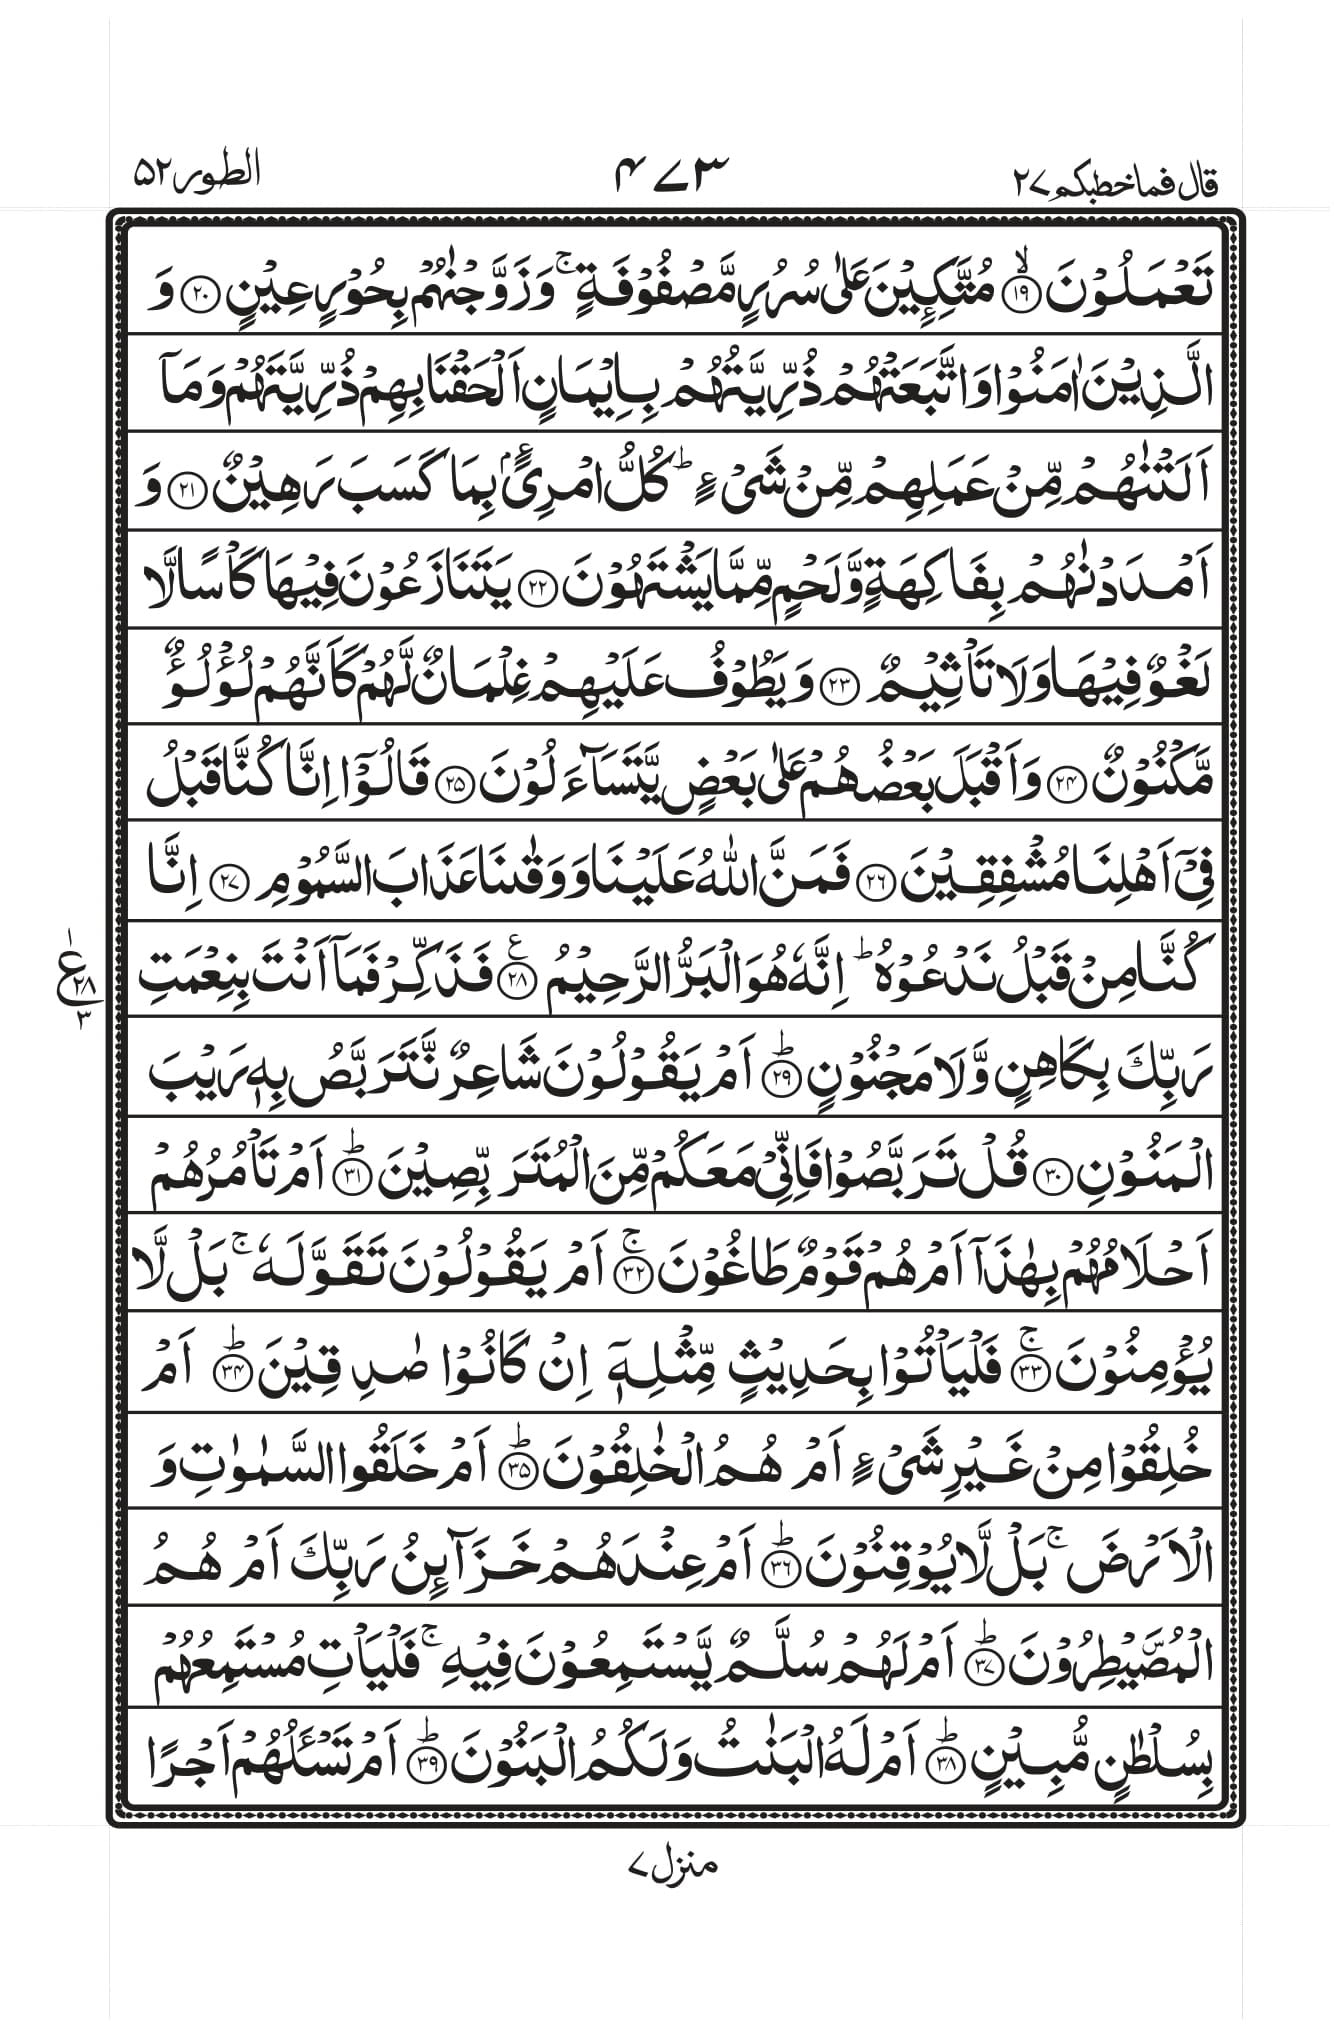 قال فماخطبکم ۲۷ ۴۷۳ الطور ۵۲
تَعۡمَلُوۡنَ ﴿ۙ۱۹﴾ مُتَّكِـِٕيۡنَ عَلٰى سُرُرٍ مَّصۡفُوۡفَةٍ ۚ وَزَوَّجۡنٰهُمۡ بِحُوۡرٍ عِيۡنٍ ﴿۲۰﴾ وَ
الَّذِيۡنَ اٰمَنُوۡا وَاتَّبَعَتۡهُمۡ ذُرِّيَّتُهُمۡ بِاِيۡمَانٍ اَلۡحَقۡنَا بِهِمۡ ذُرِّيَّتَهُمۡ وَمَاۤ
اَلَـتۡنٰهُمۡ مِّنۡ عَمَلِهِمۡ مِّنۡ شَىۡءٍ ؕ كُلُّ امۡرِیٍٴۢ بِمَا كَسَبَ رَهِيۡنٌ ﴿۲۱﴾ وَ
اَمۡدَدۡنٰهُمۡ بِفَاكِهَةٍ وَّلَحۡمٍ مِّمَّا يَشۡتَهُوۡنَ ﴿۲۲﴾ يَتَنَازَعُوۡنَ فِيۡهَا كَاۡسًا لَّا
لَغۡوٌ فِيۡهَا وَلَا تَاۡثِيۡمٌ ﴿۲۳﴾ وَيَطُوۡفُ عَلَيۡهِمۡ غِلۡمَانٌ لَّهُمۡ كَاَنَّهُمۡ لُـؤۡلُـؤٌ
مَّكۡنُوۡنٌ ﴿۲۴﴾ وَاَقۡبَلَ بَعۡضُهُمۡ عَلٰى بَعۡضٍ يَّتَسَآءَلُوۡنَ ﴿۲۵﴾ قَالُوۡۤا اِنَّا كُـنَّا قَبۡلُ
فِىۡۤ اَهۡلِنَا مُشۡفِقِيۡنَ ﴿۲۶﴾ فَمَنَّ اللّٰهُ عَلَيۡنَا وَوَقٰٮنَا عَذَابَ السَّمُوۡمِ ﴿۲۷﴾ اِنَّا
كُـنَّا مِنۡ قَبۡلُ نَدۡعُوۡهُ ؕ اِنَّهٗ هُوَ الۡبَـرُّ الرَّحِيۡمُ ﴿۲۸﴾ ع فَذَكِّرۡ فَمَاۤ اَنۡتَ بِنِعۡمَتِ
ع ۱ ۲۸ ۳
رَبِّكَ بِكَاهِنٍ وَّلَا مَجۡنُوۡنٍ ﴿ؕ۲۹﴾ اَمۡ يَقُوۡلُوۡنَ شَاعِرٌ نَّتَـرَبَّصُ بِهٖ رَيۡبَ
الۡمَنُوۡنِ ﴿۳۰﴾ قُلۡ تَرَبَّصُوۡا فَاِنِّىۡ مَعَكُمۡ مِّنَ الۡمُتَـرَبِّصِيۡنَ ﴿ؕ۳۱﴾ اَمۡ تَاۡمُرُهُمۡ
اَحۡلَامُهُمۡ بِهٰذَآ اَمۡ هُمۡ قَوۡمٌ طَاغُوۡنَ ﴿ۚ۳۲﴾ اَمۡ يَقُوۡلُوۡنَ تَقَوَّلَهٗ ۚ بَلْ لَّا
يُؤۡمِنُوۡنَ ﴿ۚ۳۳﴾ فَلۡيَاۡتُوۡا بِحَدِيۡثٍ مِّثۡلِهٖۤ اِنۡ كَانُوۡا صٰدِقِيۡنَ ﴿ؕ۳۴﴾ اَمۡ
خُلِقُوۡا مِنۡ غَيۡرِ شَىۡءٍ اَمۡ هُمُ الۡخٰلِقُوۡنَ ﴿ؕ۳۵﴾ اَمۡ خَلَـقُوا السَّمٰوٰتِ وَ
الۡاَرۡضَ ۚ بَلْ لَّا يُوۡقِنُوۡنَ ﴿ؕ۳۶﴾ اَمۡ عِنۡدَهُمۡ خَزَآٮِٕنُ رَبِّكَ اَمۡ هُمُ
الۡمُصَۜيۡطِرُوۡنَ ﴿ؕ۳۷﴾ اَمۡ لَهُمۡ سُلَّمٌ يَّسۡتَمِعُوۡنَ فِيۡهِ ۚ فَلۡيَاۡتِ مُسۡتَمِعُهُمۡ
بِسُلۡطٰنٍ مُّبِيۡنٍ ﴿ؕ۳۸﴾ اَمۡ لَـهُ الۡبَنٰتُ وَلَـكُمُ الۡبَنُوۡنَ ﴿ؕ۳۹﴾ اَمۡ تَسۡـَٔلُهُمۡ اَجۡرًا
منزل ۷